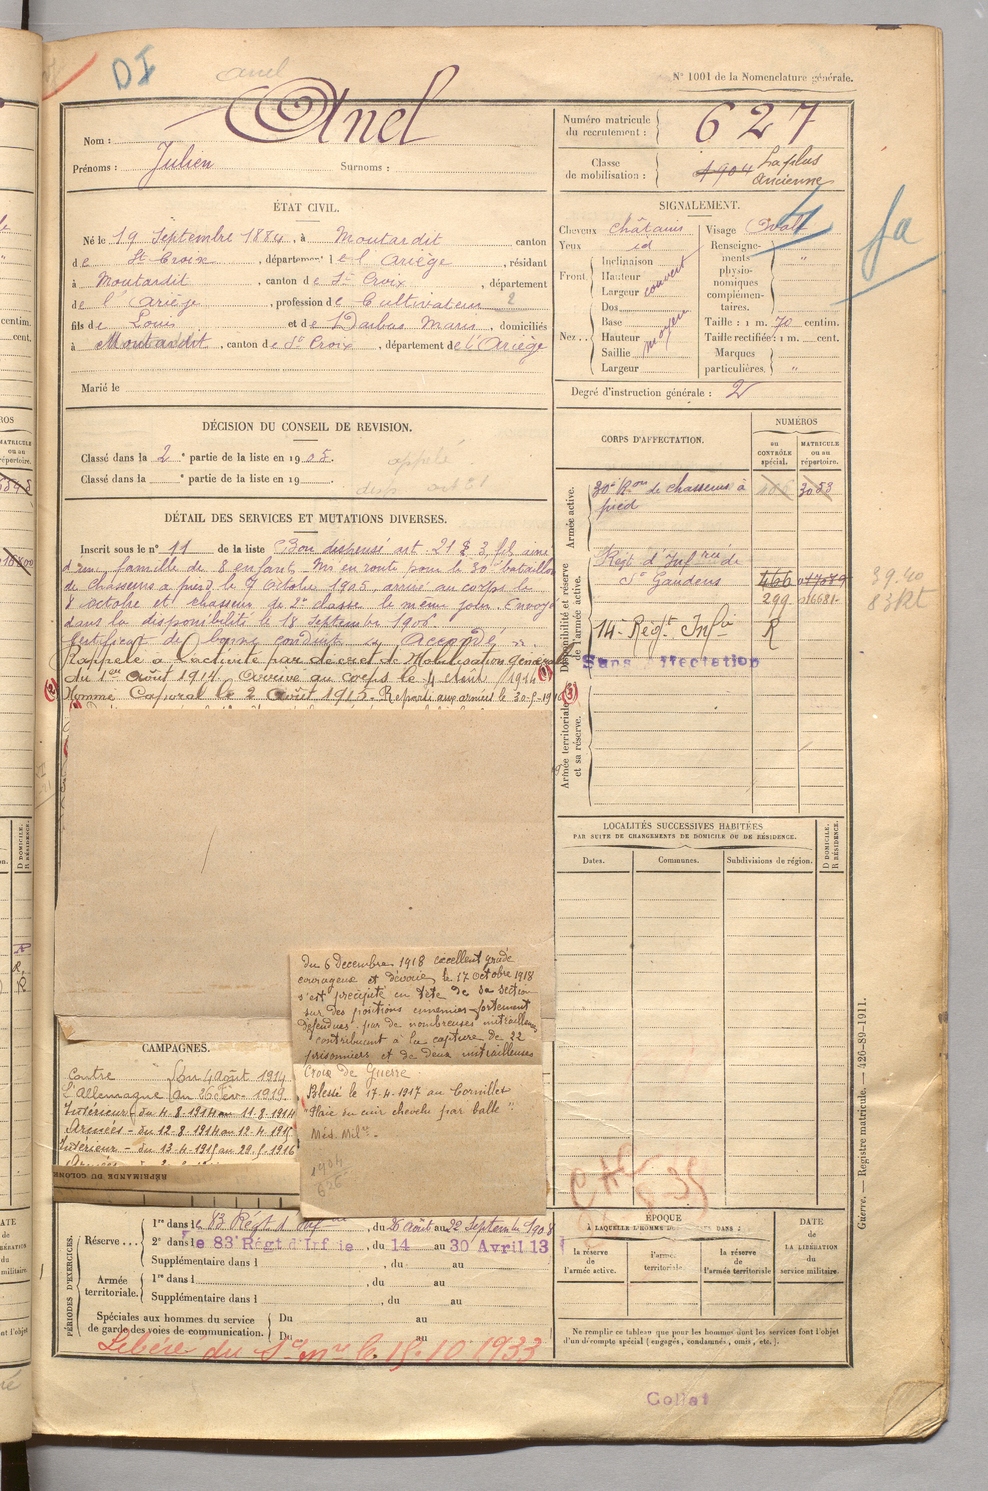 DI
Anel
N° 1001 de la Nomenclature générale.
Nom : Anel
Prénoms : Julien Surnoms :
Numéro matricule du recrutement : 627
Classe de mobilisation : 1904 La plus ancienne
ÉTAT CIVIL.
Né le 19 Septembre 1884, à Moutardit canton
de St Croix, département de l'Ariège, résidant
à Moutardit, canton de St Croix, département
de l'Ariège, profession de Cultivateur 2
fils de Louis et de Darbas Marie, domiciliés
à Moutardit, canton de St Croix, département de l'Ariège
Marié le
SIGNALEMENT.
Cheveux châtains
Yeux id
Front Inclinaison Hauteur Largeur couvert
Nez Dos Base Hauteur Saillie Largeur moyen
Visage Oval
Renseignements physionomiques complémentaires. "
Taille : 1 m. 70 centim.
Taille rectifiée : 1 m. cent.
Marques particulières. "
Degré d'instruction générale : 2
fa
DÉCISION DU CONSEIL DE REVISION.
Classé dans la 2e partie de la liste en 1905. appelé
Classé dans la e partie de la liste en 19 . disp art 21
DÉTAIL DES SERVICES ET MUTATIONS DIVERSES.
Inscrit sous le n° 11 de la liste Bon dispensé art. 21 § 3 fils aîné
d'une famille de 8 enfants. Mis en route pour le 30e bataillon
de chasseurs à pied le 7 Octobre 1905, arrivé au corps le
8 octobre et chasseur de 2e classe le même jour. Envoyé
dans la disponibilité le 18 Septembre 1906.
Certificat de bonne conduite Accordé
Rappelé à l'activité par décret de Mobilisation générale
du 1er Août 1914. Arrivé au corps le 4 Août 1914 (1)
(2) Nommé Caporal le 2 Août 1915. Reparti aux armées le 30-5-1916 (3)
CORPS D'AFFECTATION.
NUMÉROS
au CONTRÔLE spécial.
MATRICULE ou au répertoire.
Armée active.
30e Bon de chasseurs à pied 3053
Disponibilité et réserve de l'armée active.
Régt d'Infrie de St Gaudens 466
299 016681
14e Régt Infie R
Sans affectation
39.40
83 RI
Armée territoriale et sa réserve.
LOCALITÉS SUCCESSIVES HABITÉES
PAR SUITE DE CHANGEMENTS DE DOMICILE OU DE RÉSIDENCE.
Dates. Communes. Subdivisions de région. D DOMICILE. R RÉSIDENCE.
Du 6 Décembre 1918 excellent gradé
courageux et dévoué, le 17 octobre 1918
s'est précipité en tête de sa section
sur des positions ennemies fortement
défendues par de nombreuses mitrailleuses
contribuant à la capture de 22
prisonniers et de deux mitrailleuses
Croix de Guerre
Blessé le 17-4-1917 au Cornillet
"Plaie du cuir chevelu par balle"
Méd. Milre.
1904
626
CAMPAGNES.
Contre l'Allemagne du 4 Août 1914 au 26 Fév. 1919.
Intérieur - du 4-8-1914 au 11-8-1914
Armées - du 12-8-1914 au 12-4-1915
Intérieur - du 13-4-1915 au 29-5-1916
RÉPRIMANDE DU COLONEL
PÉRIODES D'EXERCICES.
Réserve... 1re dans le 83e Régt d'Infrie, du 26 août au 22 Septembre 1908
2e dans le 83e Régt d'Infrie, du 14 au 30 Avril 13
Supplémentaire dans l , du au
Armée territoriale. 1re dans l , du au
Supplémentaire dans l , du au
Spéciales aux hommes du service de garde des voies de communication. Du au
Du au
Libéré du Sce mre le 15-10-1933
ÉPOQUE
À LAQUELLE L'HOMME
DATE DE LA LIBÉRATION du service militaire.
la réserve de l'armée active.
l'armée territoriale.
la réserve de l'armée territoriale
Ne remplir ce tableau que pour les hommes dont les services font l'objet
d'un décompte spécial (engagés, condamnés, omis, etc.).
Collat
Guerre. — Registre matricule. — 426-89-1911.